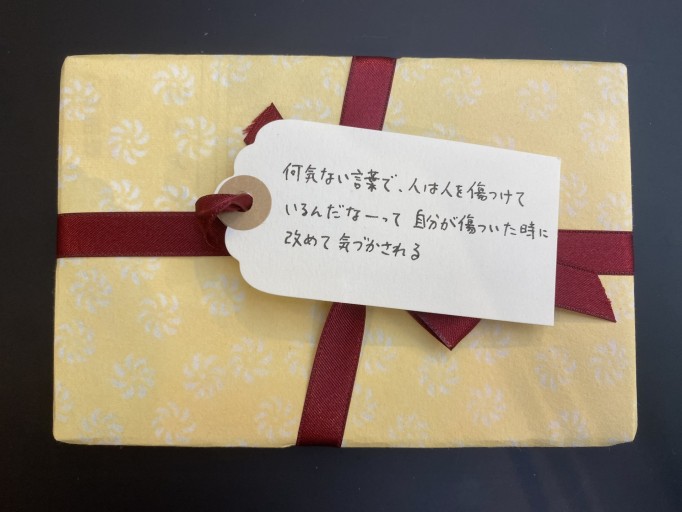 何気ない言葉で、人は人を傷つけて
いるんだなーって 自分が傷ついた時に
改めて気づかされる